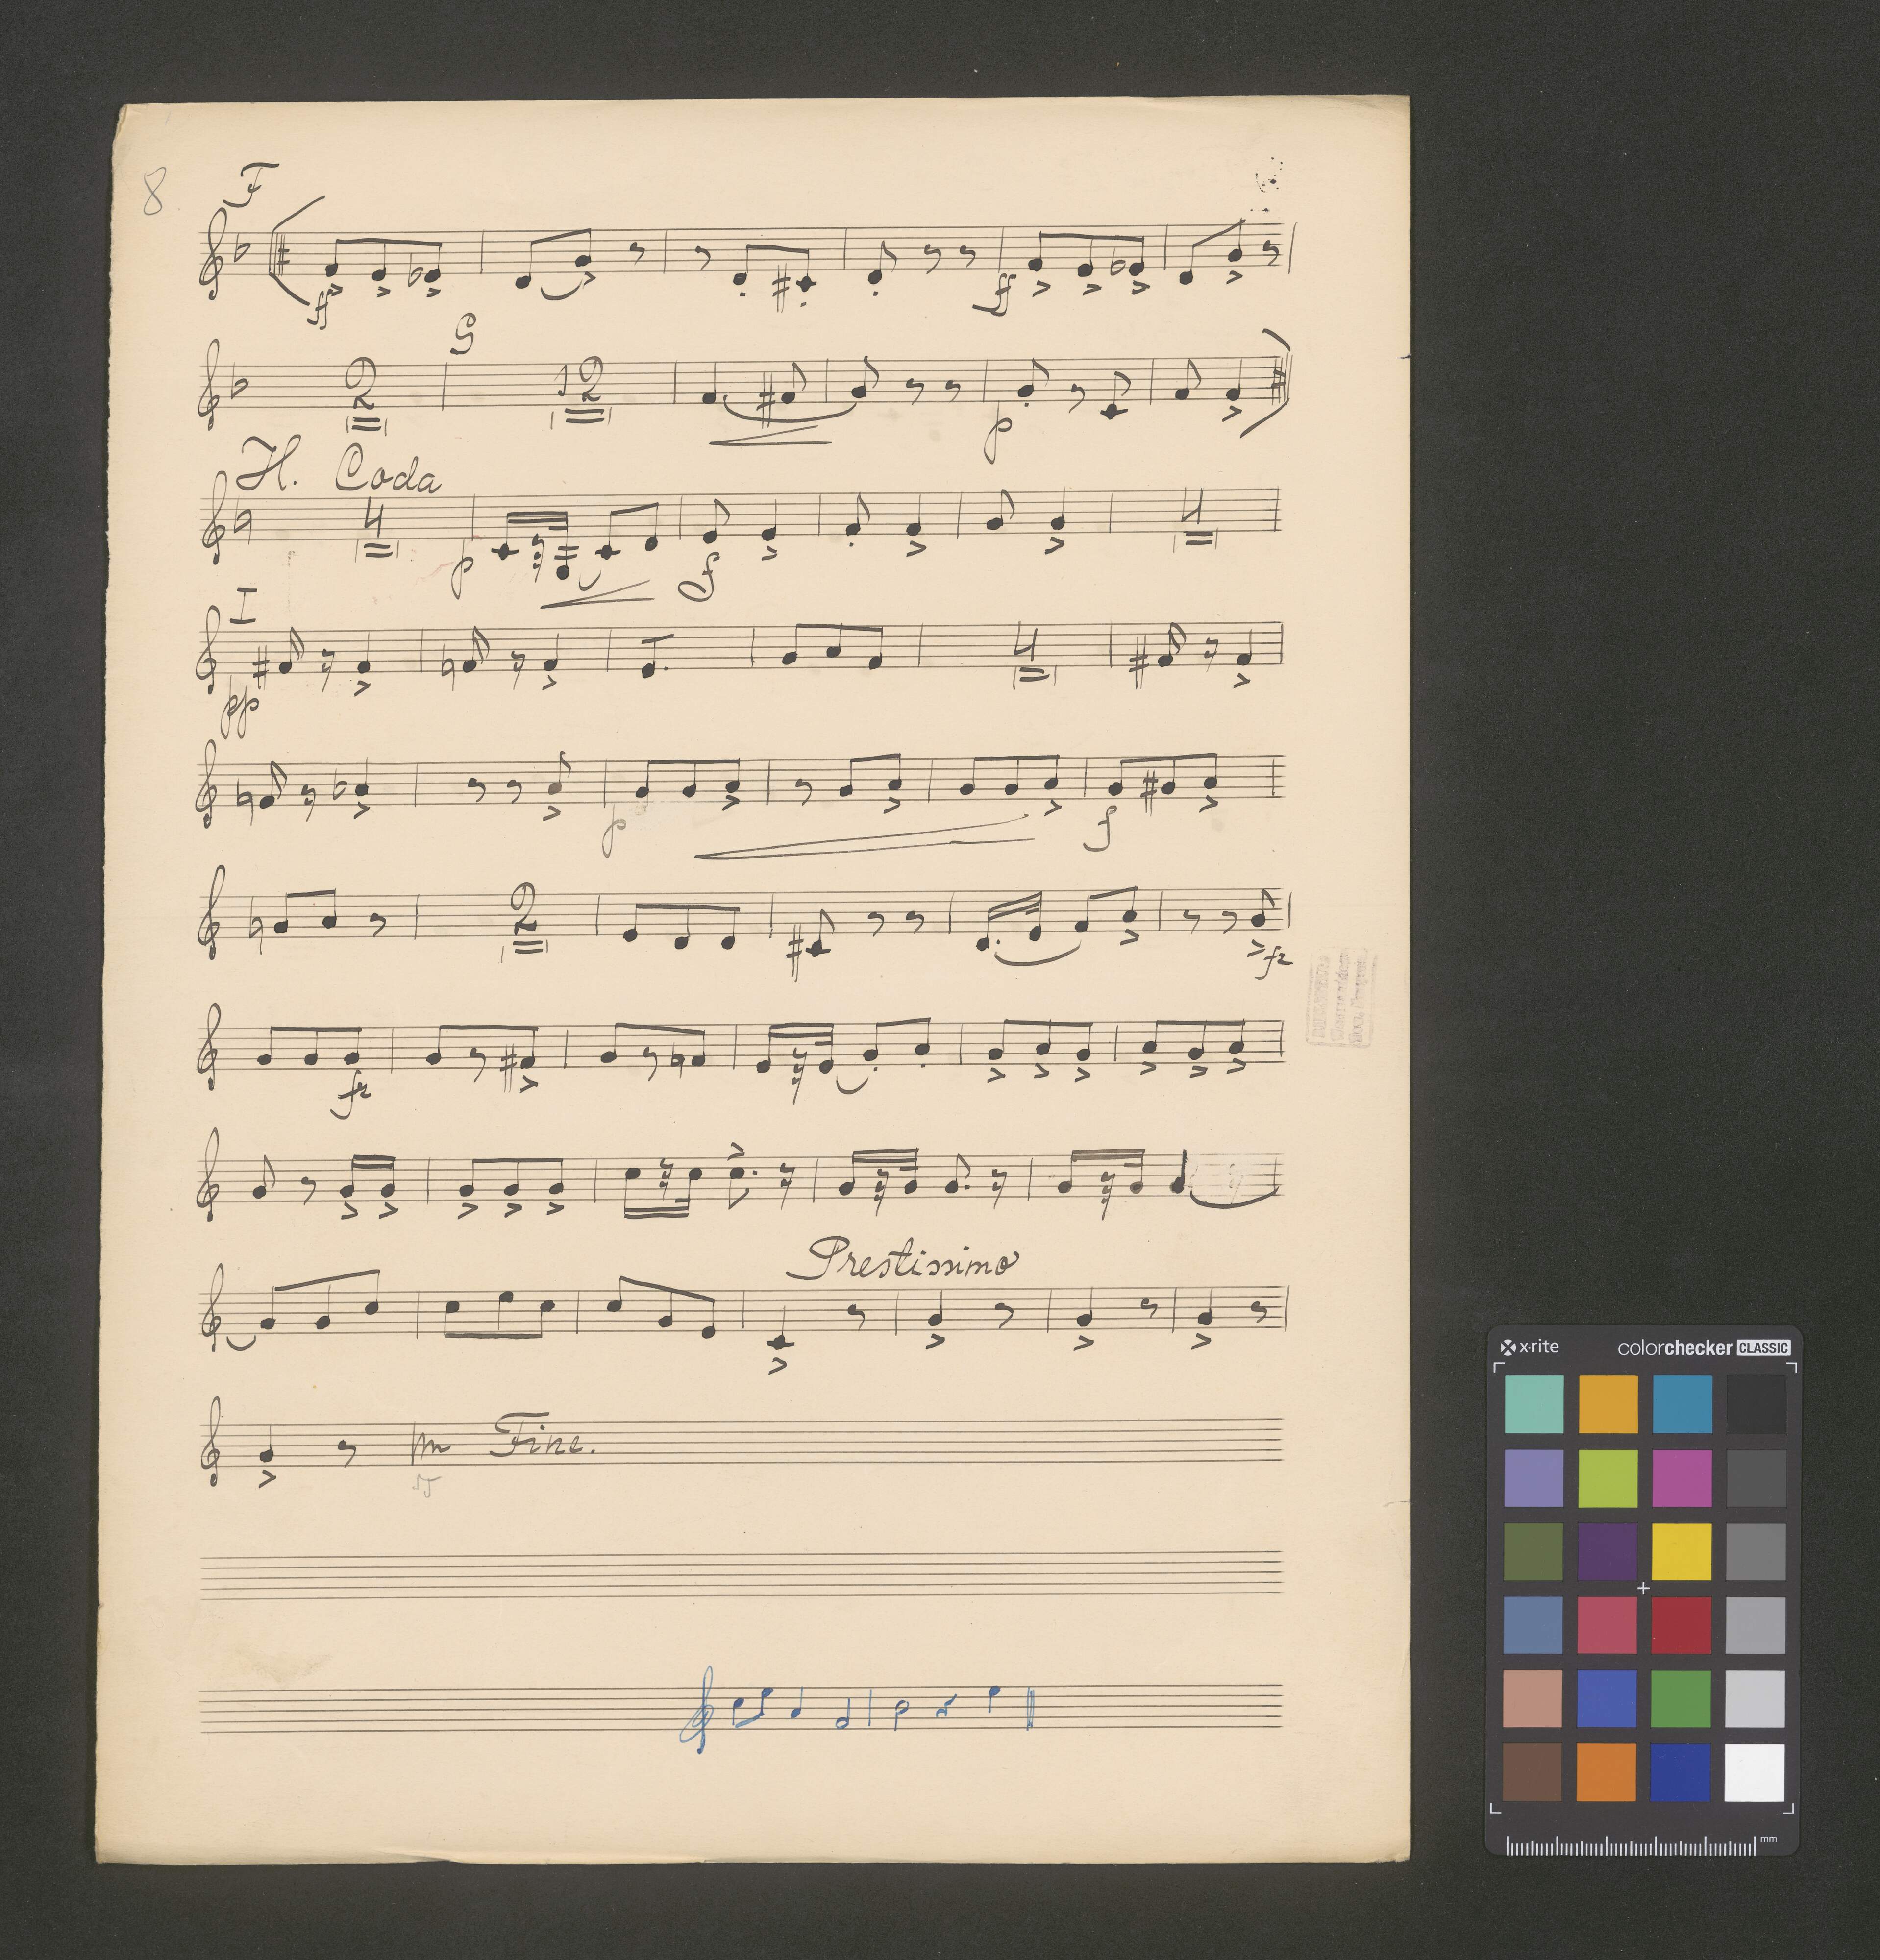 8
F
ff
ff
2
G
12
p
H. Coda
4
p
f
4
I
pp
4
p
f
2
fz
fz
Prestissimo
Fine.
x·rite colorchecker CLASSIC
mm